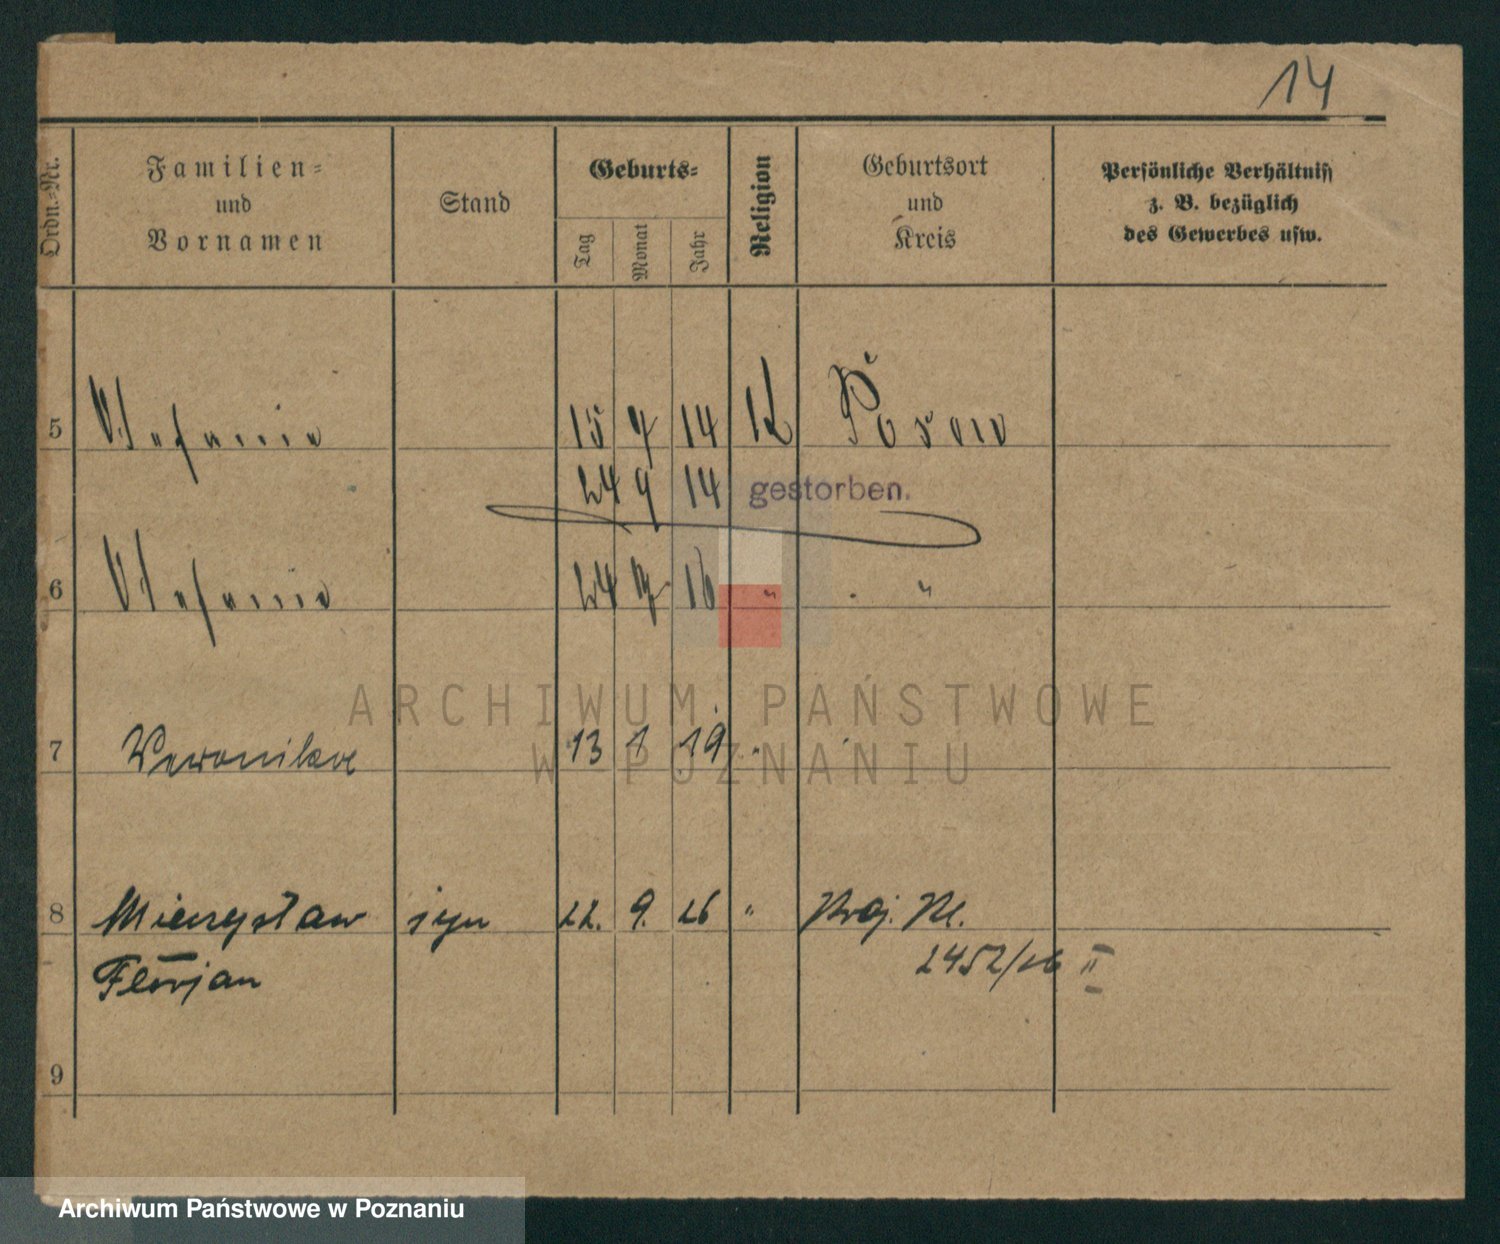 14
Ordn.-Nr. Familien- und Vornamen Stand Geburts- Tag Monat Jahr Religion Geburtsort und Kreis Persönliche Verhältniss z. B. bezüglich des Gewerbes usw.
5 Stefania 15 9 14 K Posen
24 9 14 gestorben.
6 Stefania 24 16 " "
ARCHIWUM PAŃSTWOWE
7 Weronika 13 1 19 "
W POZNANIU
8 Mieczysław syn 22. 9. 26 "
Florjan 2452/26 II
9
Archiwum Państwowe w Poznaniu